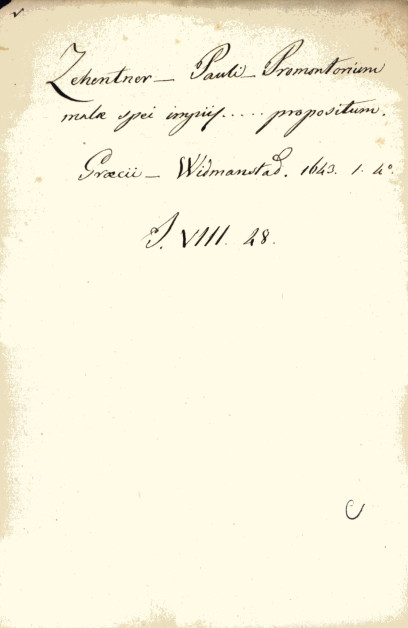 Zehentner — Pauli — Promontorium
malæ spei impiis ..... propositum.
Græcii — Widmanstad. 1643. 1. 4º.
J. VIII. 48.
C